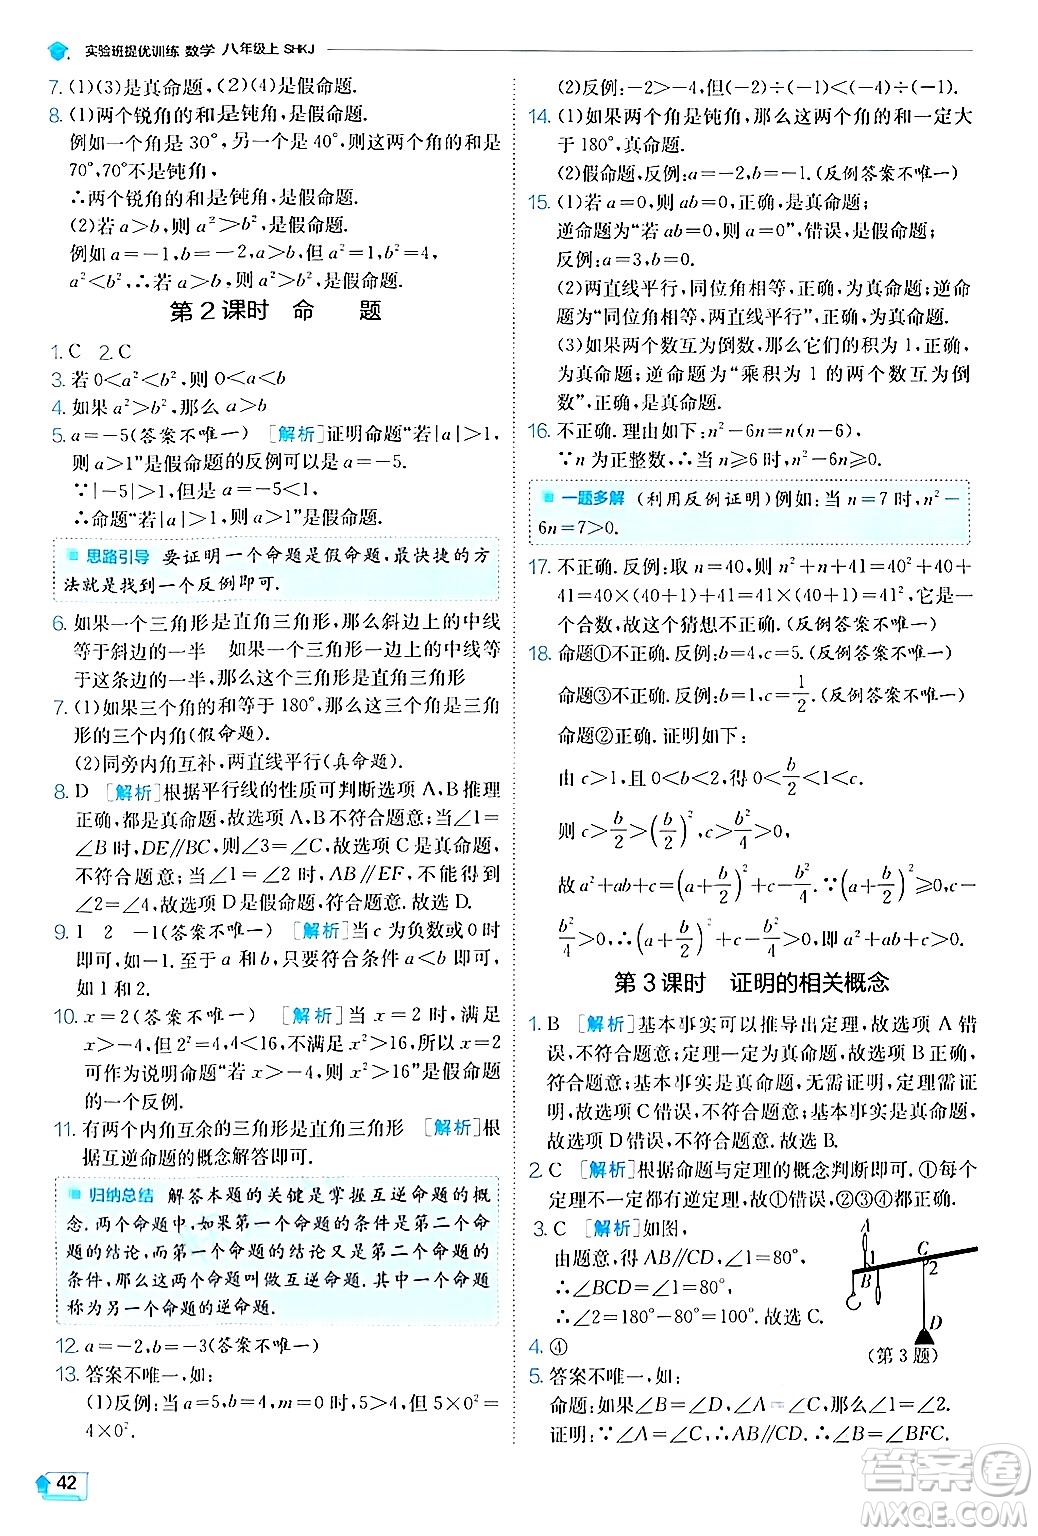 实验班提优训练 数学 八年级上 SHKJ
7. (1)(3)是真命题,(2)(4)是假命题.
8. (1)两个锐角的和是钝角,是假命题.
例如一个角是30°,另一个角是40°,则这两个角的和是
70°,70°不是钝角,
∴两个锐角的和是钝角,是假命题.
(2)若a>b,则a²>b²,是假命题.
例如a=-1,b=-2,a>b,但a²=1,b²=4,
a²<b²,∴若a>b,则a²>b²,是假命题.
第2课时 命 题
1. C 2. C
3. 若0<a²<b²,则0<a<b
4. 如果a²>b²,那么a>b
5. a=-5(答案不唯一) [解析]证明命题“若|a|>1,
则a>1”是假命题的反例可以是a=-5.
∵|-5|>1,但是-5<1,
∴命题“若|a|>1,则a>1”是假命题.
思路引导 要证明一个命题是假命题,最快捷的方
法就是找到一个反例即可.
6. 如果一个三角形是直角三角形,那么斜边上的中线
等于斜边的一半 如果一个三角形一边上的中线等于
这条边的一半,那么这个三角形是直角三角形
7. (1)如果三个角的和等于180°,那么这三个角是三角
形的三个内角(假命题).
(2)同旁内角互补,两直线平行(真命题).
8. D [解析]根据平行线的性质可判断选项A,B推理
正确,都是真命题,故选项A,B不符合题意;当∠1=
∠B时,DE∥BC,则∠3=∠C,故选项C是真命题,
不符合题意;当∠1=∠2时,AB∥EF,不能得到
∠2=∠4,故选项D是假命题,符合题意.故选D.
9. 1 2 -1(答案不唯一) [解析]当c为负数或0时
即可,如-1.至于a,b,只要符合条件a<b即可,
如1和2.
10. x=2(答案不唯一) [解析]当x=2时,满足x>
-4,但2²=4<16,不满足x²>16,所以x=2
可作为说明命题“若x>-4,则x²>16”是假命题
的一个反例.
11. 有两个内角互余的三角形是直角三角形 [解析]根
据互逆命题的概念解答即可.
归纳总结 解答本题的关键是掌握互逆命题的概
念.两个命题中,如果第一个命题的条件是第二个命
题的结论,而第一个命题的结论又是第二个命题的
条件,那么这两个命题叫做互逆命题.其中一个命题
称为另一个命题的逆命题.
12. a=-2,b=-3(答案不唯一)
13. 答案不唯一,如:
(1)反例:当a=5,b=4,m=0时,5>4,但5×0²=
4×0².
(2)反例:-2>-4,但(-2)÷(-1)<(-4)÷(-1).
14. (1)如果两个角是钝角,那么这两个角的和一定大
于180°,真命题.
(2)假命题,反例:a=-2,b=-1.(反例答案不唯一)
15. (1)若a=0,则ab=0,正确,是真命题;
逆命题为“若ab=0,则a=0”,错误,是假命题;
反例:a=3,b=0.
(2)两直线平行,同位角相等,正确,为真命题;逆命
题为“同位角相等,两直线平行”,正确,为真命题.
(3)如果两个数互为倒数,那么它们的积为1,正确,
为真命题;逆命题为“乘积为1的两个数互为倒
数”,正确,是真命题.
16. 不正确.理由如下:n²-6n=n(n-6),
∵n为正整数,∴当n≥6时,n²-6n≥0.
一题多解 (利用反例证明)例如:当n=7时,n²-
6n=7>0.
17. 不正确.反例:取n=40,则n²+n+41=40²+40+
41=40×(40+1)+41=41×(40+1)=41²,它是一
个合数,故这个猜想不正确.(反例答案不唯一)
18. 命题①不正确.反例:b=4,c=5.(反例答案不唯一)
命题③不正确.反例:b=1,c=1/2.(反例答案不唯一)
命题②正确.证明如下:
由c>1,且0<b<2,得0<b/2<1<c.
则c>b/2>(b/2)²,c>b²/4>0,
故a²+ab+c>(a+b/2)²-b²/4+b²/4.∵(a+b/2)²≥0,
b²/4>0,∴(a+b/2)²≥0,即a²+ab+c>0.
第3课时 证明的相关概念
1. B [解析]基本事实可以推导出定理,故选项A错
误,不符合题意;定理一定是真命题,故选项B正确,
符合题意;基本事实是真命题,无需证明,定理需证
明,故选项C错误,不符合题意;基本事实是真命题,
故选项D错误,不符合题意.故选B.
2. C [解析]根据命题与定理的概念判断即可.①每个
定理不一定都有逆定理,故①错误;②③④都正确.
3. C [解析]如图,
由题意,得AB∥CD,∠1=80°,
∴∠BCD=∠1=80°,
∴∠2=180°-80°=100°.故选C.
A
1
B
C
2
D
(第3题)
4. ④
5. 答案不唯一,如:
命题:如果∠B=∠D,∠A=∠C,那么∠1=∠2.
证明:∵∠B=∠D(已知),∠D=∠BFC,
42
答案圈
MXQE.COM